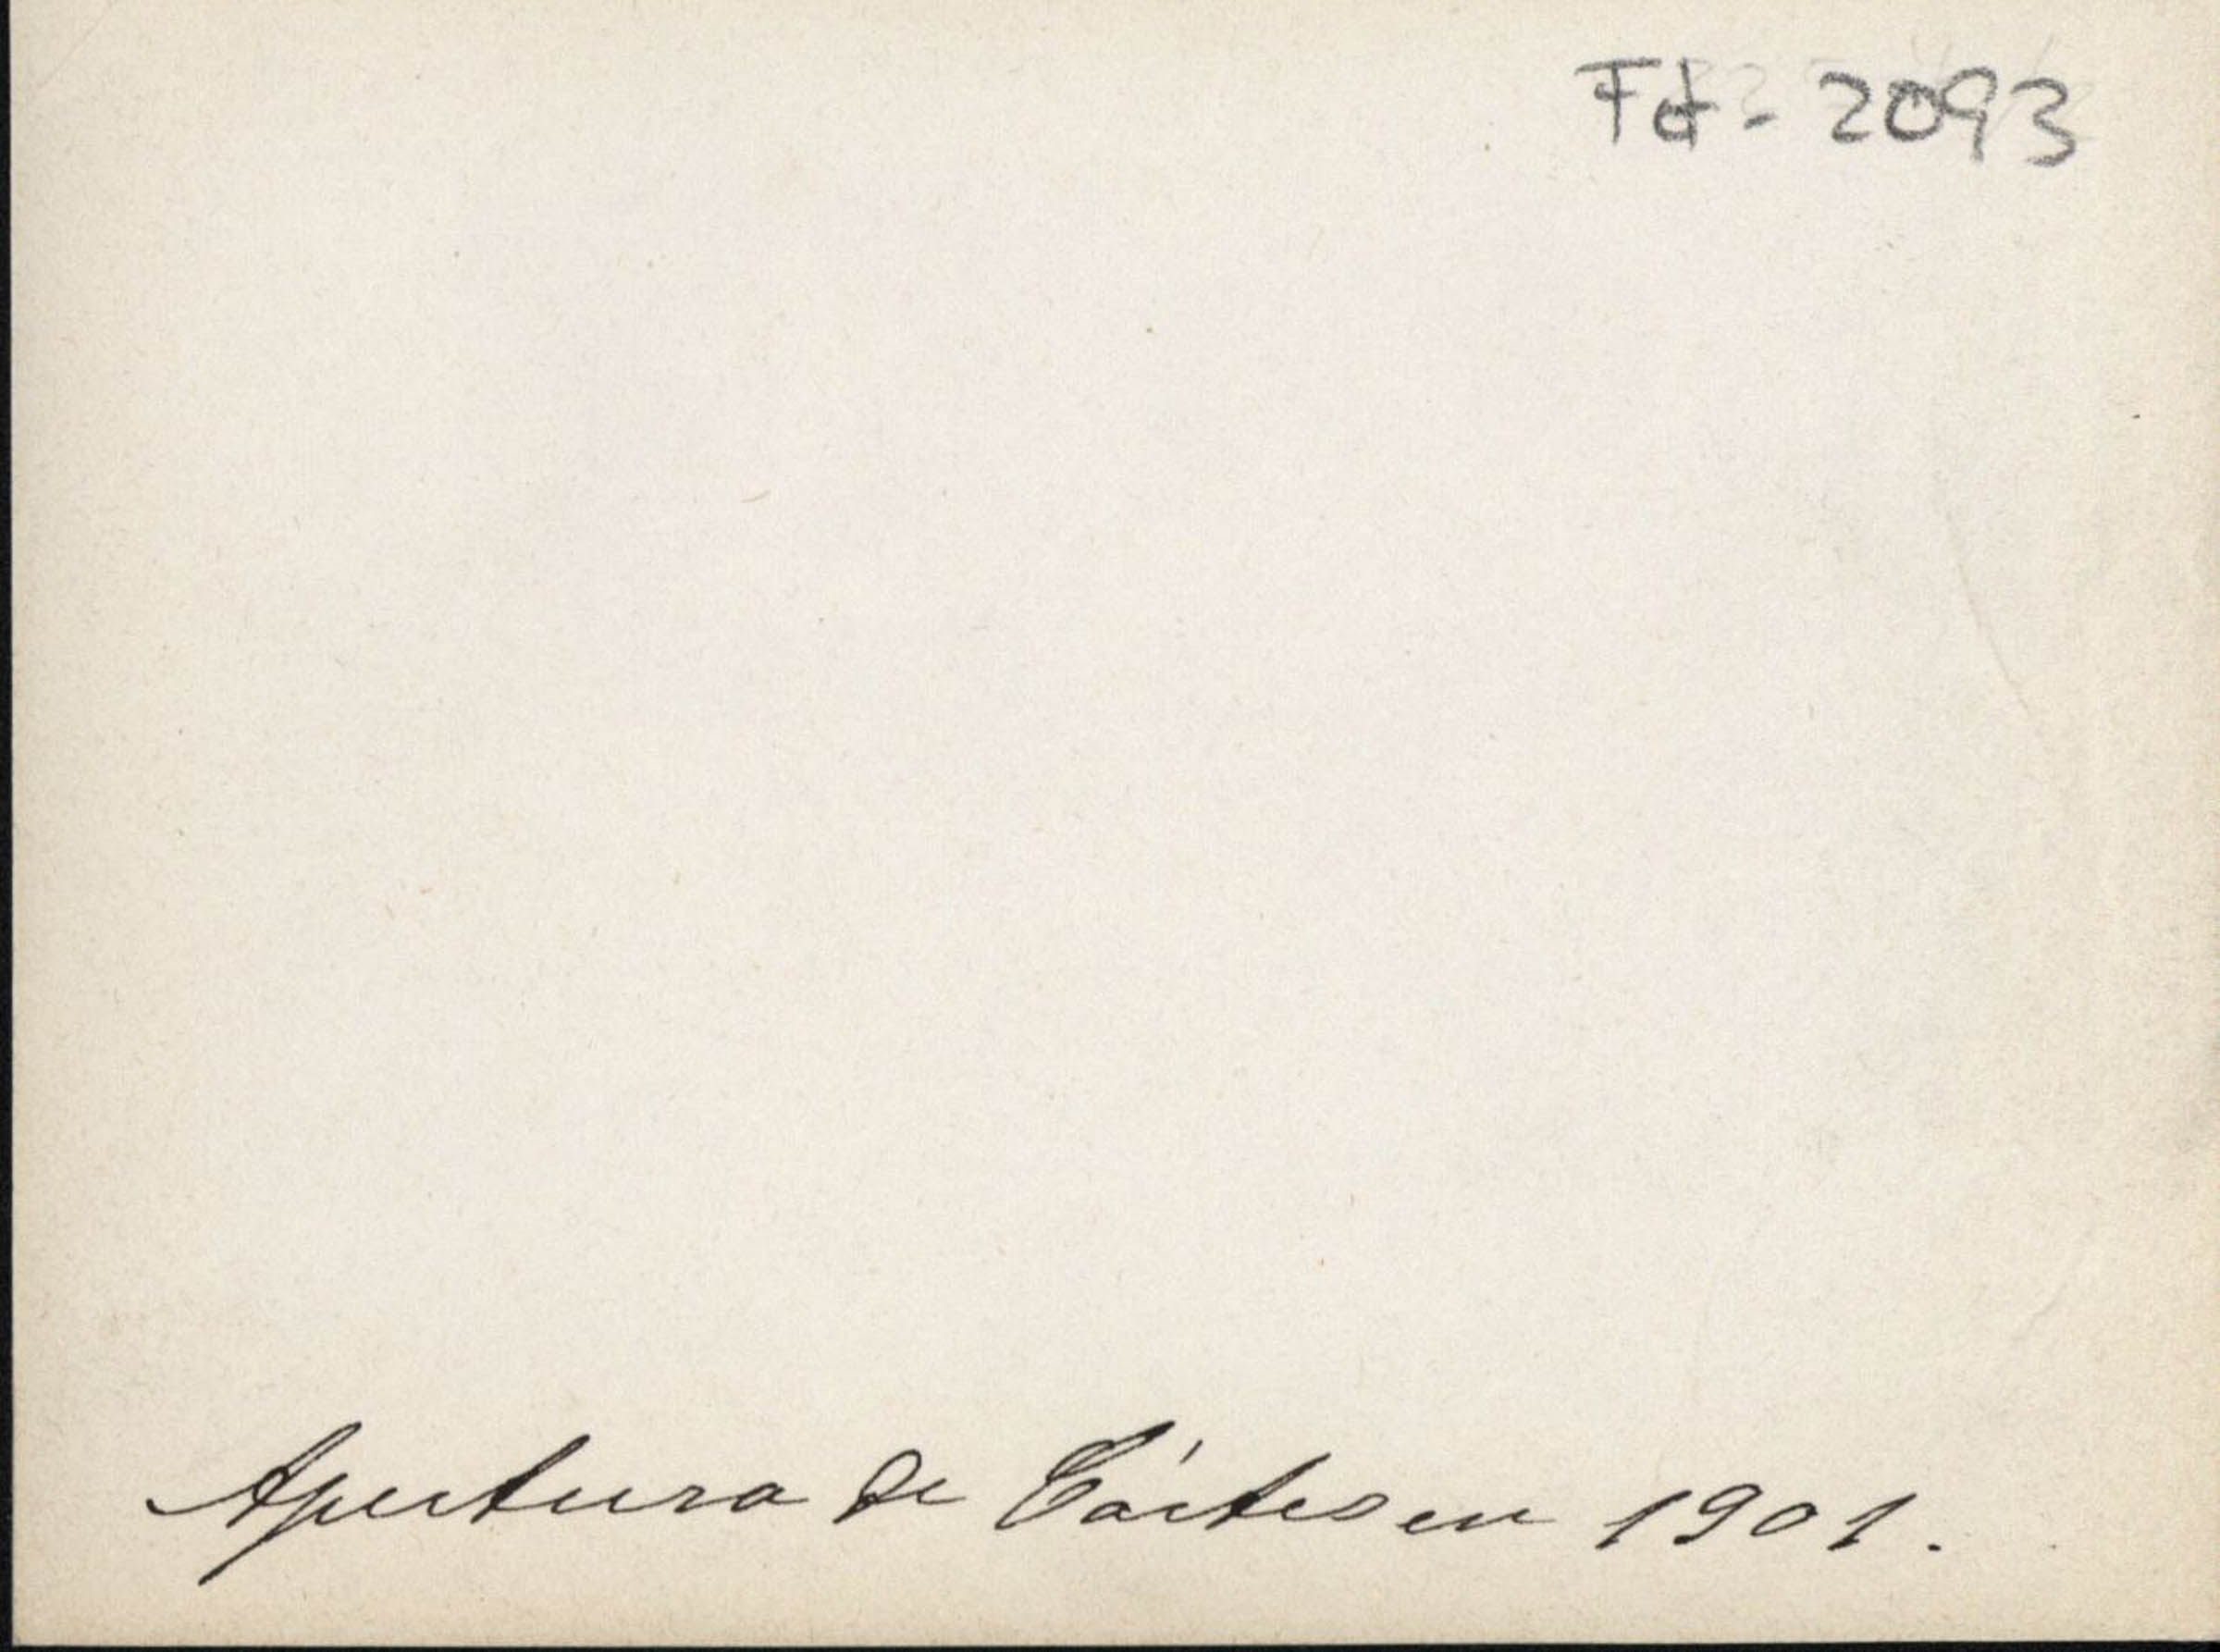 Fd- 2093
Apertura de Córtes en 1901.